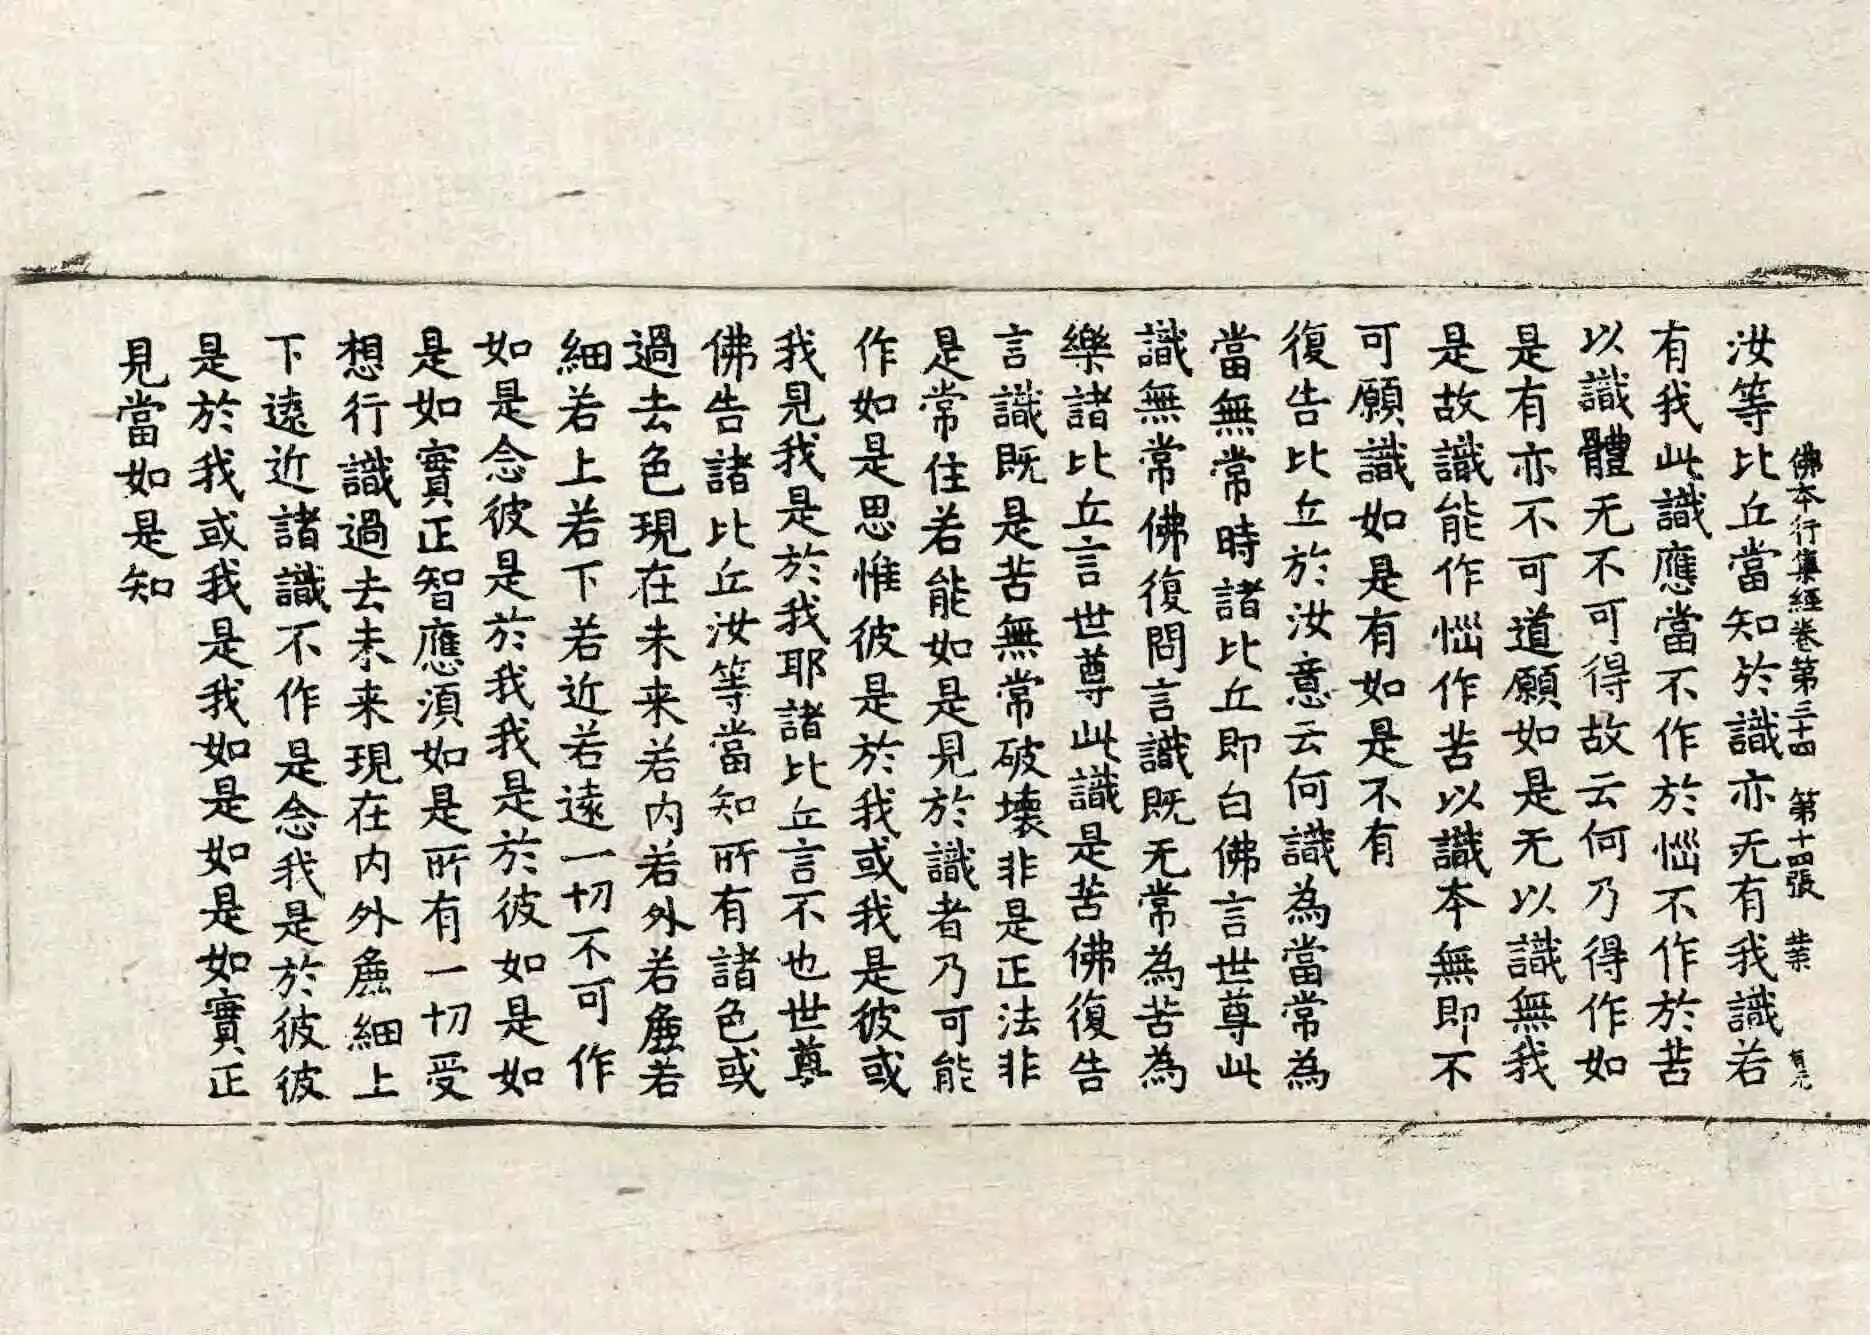 佛本行集經卷第三十四 第十四張 業
汝等比丘當知於識亦无有我識若
有我此識應當不作於惱不作於苦
以識體无不可得故云何乃得作如
是有亦不可道願如是无以識無我
是故識能作惱作苦以識本無即不
可願識如是有如是不有
復告比丘於汝意云何識為當常為
當無常時諸比丘即白佛言世尊此
識無常佛復問言識既无常為苦為
樂諸比丘言世尊此識是苦佛復告
言識既是苦無常破壞非是正法非
是常住若能如是見於識者乃可能
作如是思惟彼是於我或我是彼或
我見我是於我耶諸比丘言不也世尊
佛告諸比丘汝等當知所有諸色或
過去色現在未来若内若外若麁若
細若上若下若近若遠一切不可作
如是念彼是於我我是於彼如是如
是如實正智應湏如是所有一切受
想行識過去未来現在内外麁細上
下遠近諸識不作是念我是於彼彼
是於我或我是我如是如是如實正
見當如是知